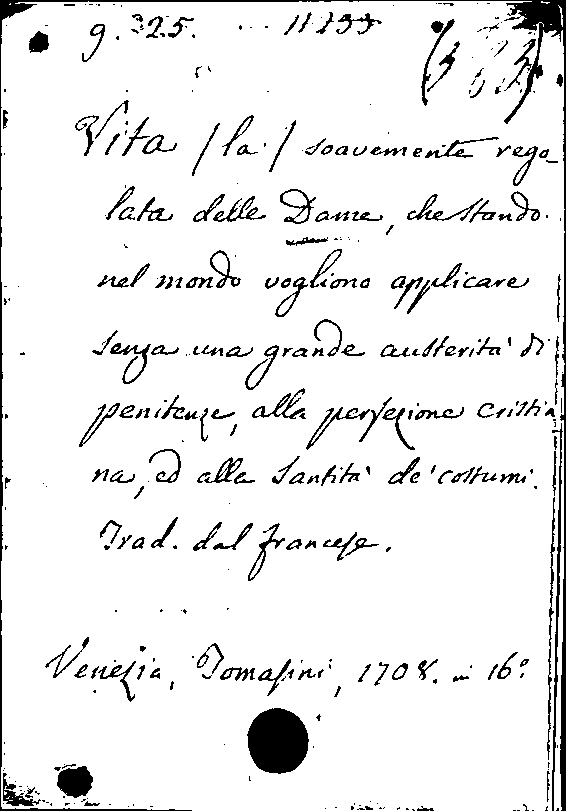 g. 325. 11233
(363)
Vita /la/ soavemente rego_
lata delle Dame, che stando
nel mondo vogliono applicare
senza una grande austerità di
penitenze, alla perfezione cristia_
na, ed alla santità de' costumi.
Trad. dal francese.
Venezia, Tomasini, 1708. in 16º